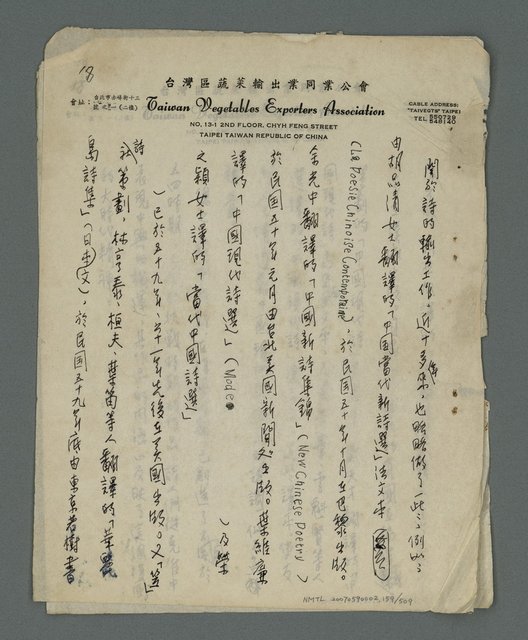 18
台灣區蔬菜輸出業同業公會
會址：台北市赤峰街十三號之一(二樓)
Taiwan Vegetables Exporters Association
NO. 13-1 2ND FLOOR, CHYH FENG STREET
TAIPEI TAIWAN REPUBLIC OF CHINA
CABLE ADDRESS:
"TAIVEGTS" TAIPEI
TEL.
關於詩的輸出工作，近十多年來，也略略做了一些；例如：
由胡品清女士翻譯的「中國當代新詩選」法文本
(La Poésie Chinoise Contemporaine，於民國五十年十月在巴黎出版。
余光中翻譯的「中國新詩集錦」(New Chinese Poetry)
於民國五十年元月由台北美國新聞處出版。葉維廉
譯的「中國現代詩選」(Mode )乃榮
之穎女士譯的「當代中國詩選」
)已於五十九年、六十一年先後在美國出版。又「笠」
詩社策劃，林亨泰、桓夫、葉笛等人翻譯的「華麗
島詩集」(日本文)，於民國五十九年底由東京若樹書
NMTL 20070590002, 159/509